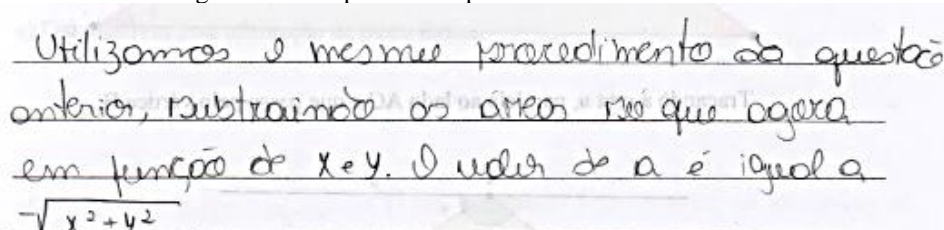 Utilizamos o mesmo procedimento da questão
anterior, subtraindo as áreas só que agora
em função de x e y. O valor de a é igual a
√x²+y²